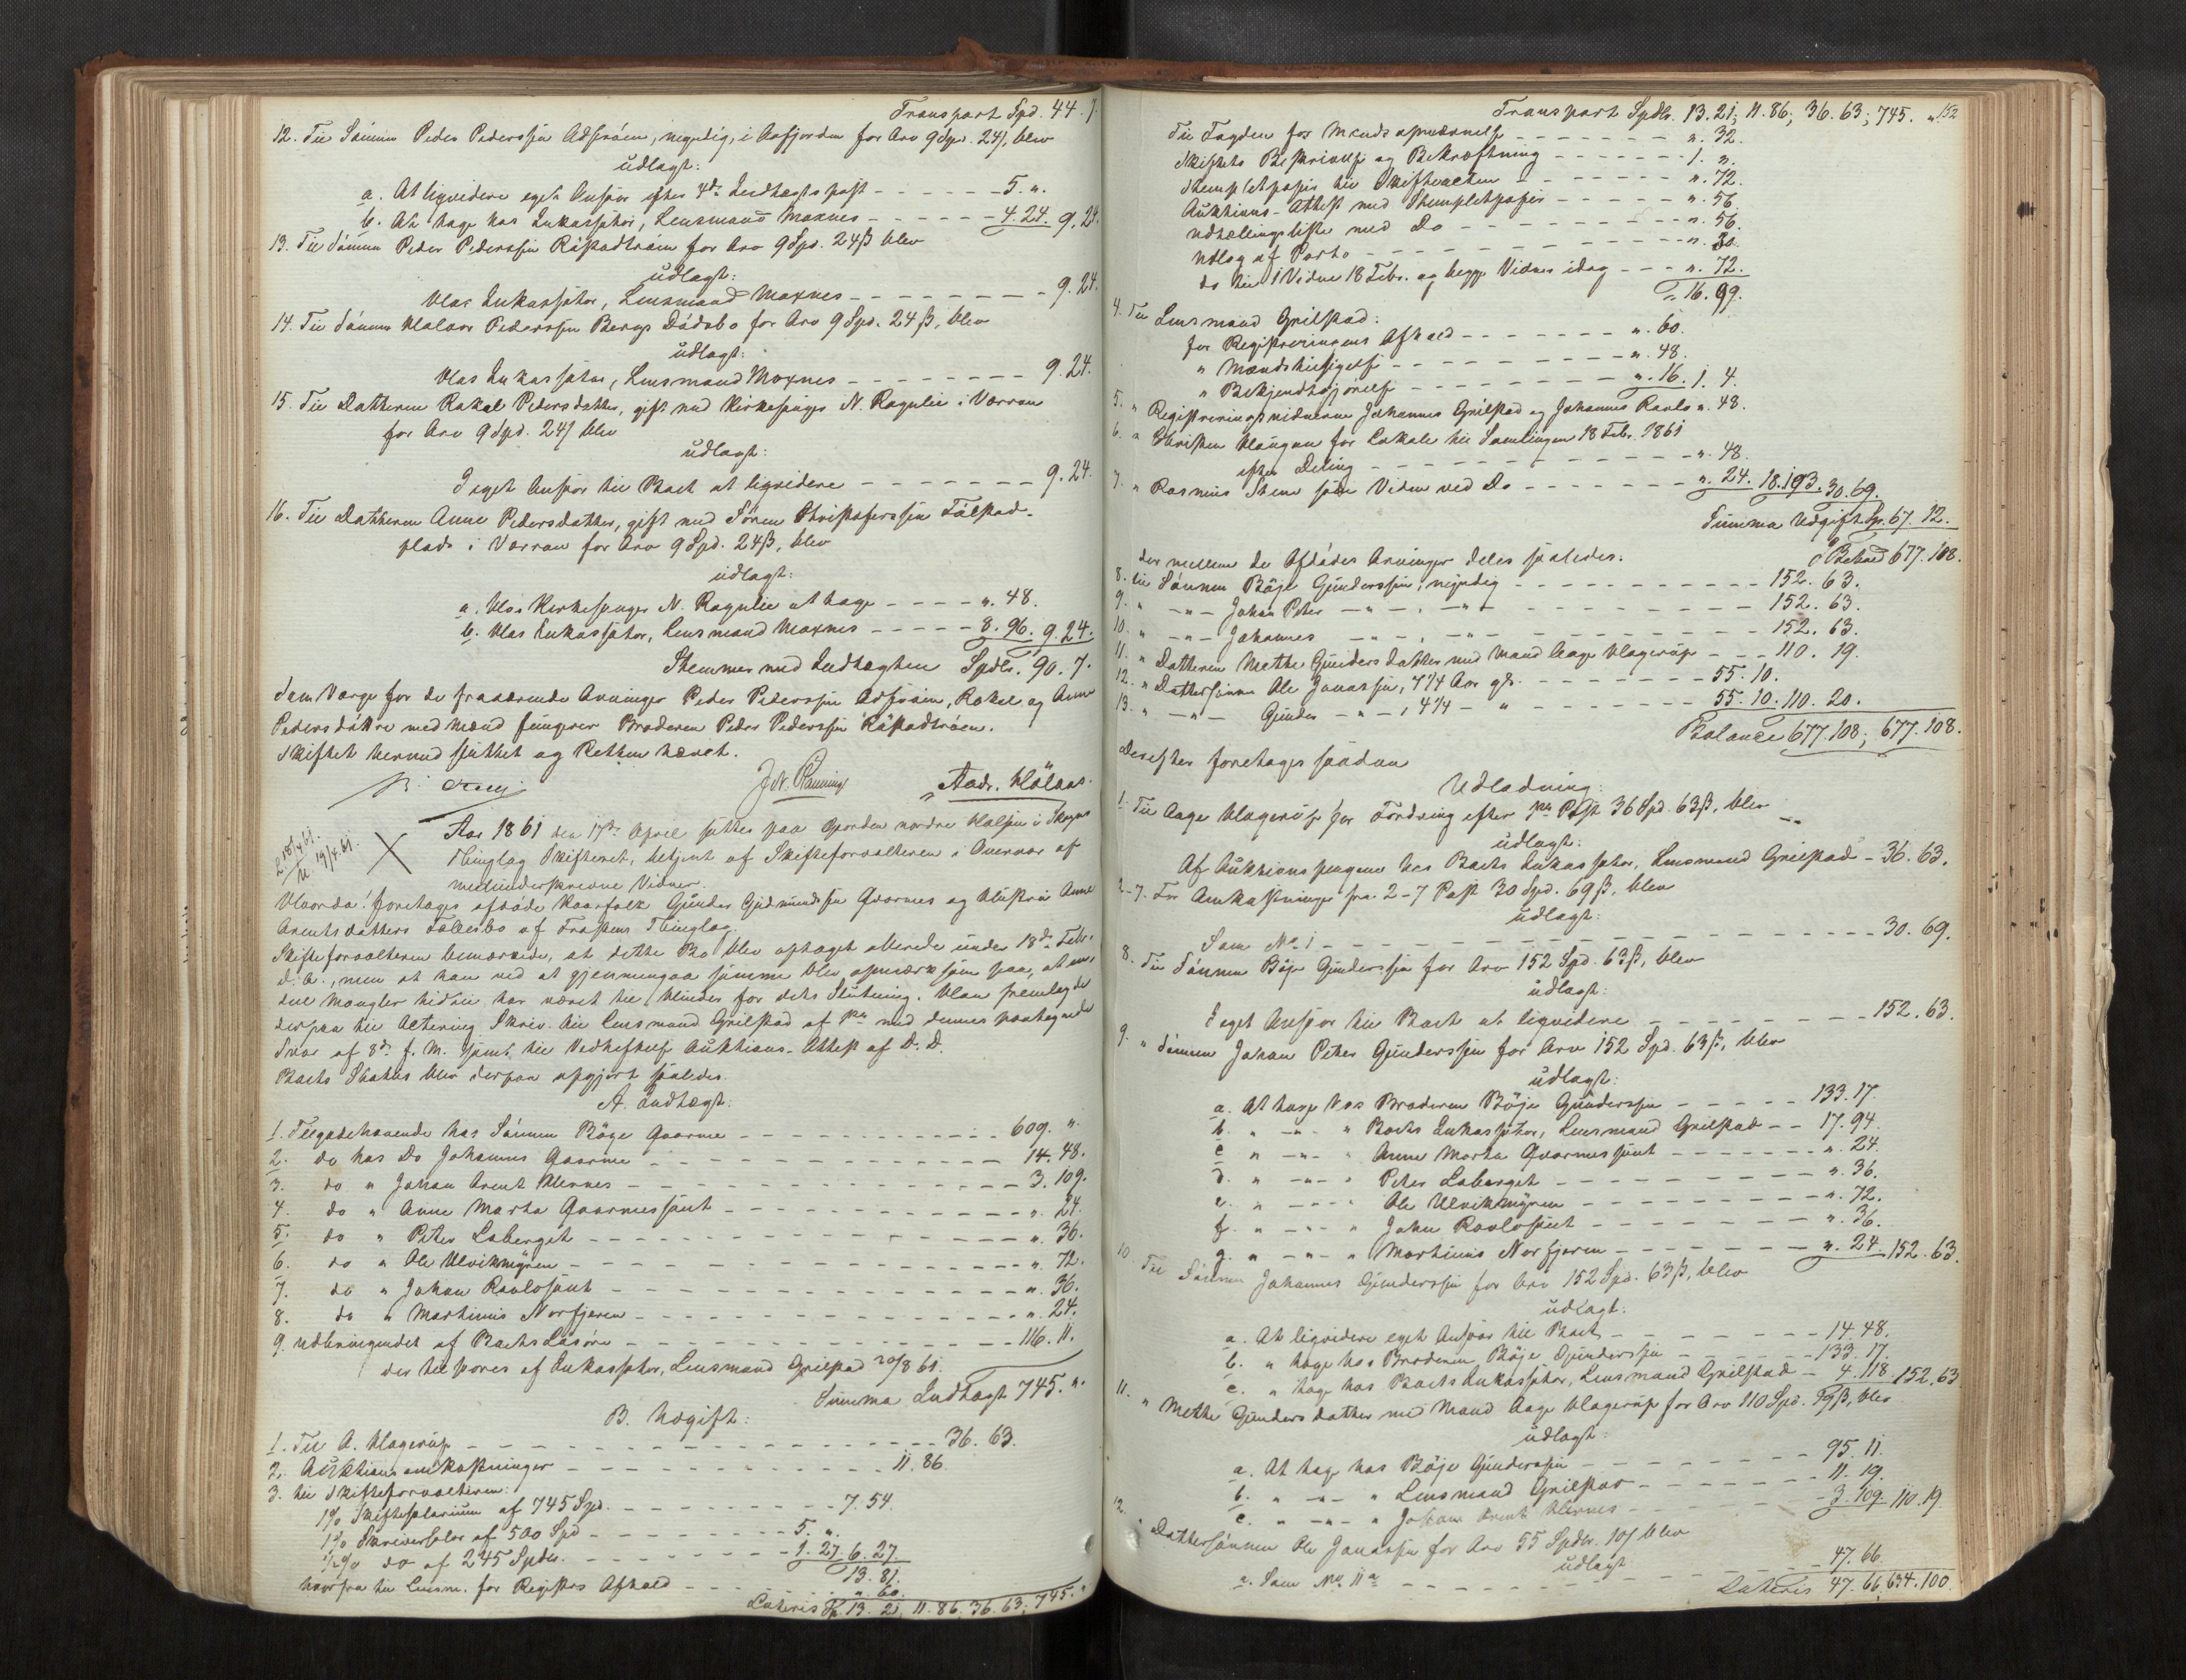 Transport Spd. 44. 7.
12. Til Sønnen Peder Pederssøn Adsraaen, myndig, i Aafjorden for Arv 9 Spd. 24 ß, blev
udlagt:
a. At liqvidere eget Ansvar efter 4de Indtægtspost - - - - - - 5. "
b. At tage hos Inkassator, Lensmand Moxnes - - - - - - 4. 24. 9. 24.
13. Til Sønnen Peder Pederssøn Råstadtrøen for Arv 9 Spd. 24 ß blev
udlagt:
Hos Inkassator, Lensmand Moxnes - - - - - - - - 9. 24.
14. Til Sønnen Halvor Pederssøn Bergs Dødsbo for Arv 9 Spd. 24 ß, blev
udlagt:
Hos Inkassator, Lensmand Moxnes - - - - - - - - 9. 24.
15. Til Datteren Rakel Pedersdatter, gift med Kirkesanger N. Ragulie i Værran
for Arv 9 Spd. 24 ß blev
udlagt:
I eget Ansvar til Boet at liqvidere - - - - - - - 9. 24.
16. Til Datteren Anne Pedersdatter, gift med Søren Christofersen Følstad-
plads i Værran for Arv 9 Spd. 24 ß, blev
udlagt:
a. Hos Kirkesanger N. Ragulie at tage - - - - - ". 48.
b. Hos Inkassator, Lensmand Moxnes - - - - - 8. 96. 9. 24.
Stemmer med Indtægten Spdlr. 90. 7.
Som Værge for de fraværende Arvinger Peder Pederssøn Adsraaen, Rakel og Anne
Pedersdøttre med Mænd fungerer Broderen Peder Pederssøn Råstadtrøen.
Skiftet hermed sluttet og Retten hævet.
Andr. Hölaas
Aar 1861 den 17de April sattes paa Gaarden nordre Halsen i Skogns
Thinglag Skifteret, betjent af Skifteforvalteren i Overvær af
medunderskrevne Vidner.
Hvorda! foretages afdøde Kaarfolk Gunder Gudmundssøn Qvarnes og Hustru Anne
Arentsdatters Fællesbo af Frostens Thinglag.
Skifteforvalteren bemærkede, at dette Bo blev optaget allerede under 18de Febr.
d. A., men at han ved at gjennemgaa samme blev opmærksom paa, at en-
del Mangler hidtil har været til Hinder for dets Slutning. Han fremlagde
derpaa til Aktering Skriv. til Lensmand Grilstad af med dennes paategnede
Svar af 8de f. M. samt til Vedheftelse Auktions-Attest af D. D.
Boets Status blev derpaa opgjort saaledes.
A. Indtægt:
1. Tilgodehavende hos Sønnen Böye Qvarne - - - - - - - - 609. "
2. do hos Do Johannes Qvarne - - - - - - - - 14. 48.
3. do " Johan Arent Hernes - - - - - - - - 3. 109.
4. do " Anne Marta Qvarnessønt - - - - - - - - ". 24.
5. do " Peter Laberget - - - - - - - - ". 36.
6. do " Ole Ulvikmyren - - - - - - - - ". 72.
7. do " Johan Ravlosønt - - - - - - - - ". 36.
8. do " Martinus Norfjeren - - - - - - - - ". 24.
9. Udbringendet af Boets Løsøre - - - - - - - - 116. 11.
der tilsvares af Inkassator, Lensmand Grilstad 20/8 61.
Summa Indtægt 745. "
B. Udgift:
1. Til A. Hagerup - - - - - - - - 36. 63.
2. Auktionsomkostninger - - - - - - - - 11. 86.
3. til Skifteforvalteren:
1% Skiftesalarium af 745 Spd. - - - - - - - - 7. 54.
1% Skriversalær af 500 Spd - - - - - - 5. "
1/2% do af 245 Spdlr. - - - - - - 1. 27. 6. 27
13. 81.
hvorfra til Lensm. for Registrs Afhold - - - - - - ". 60.
Lateris Sp. 13. 21; 11. 86; 36. 63; 745. "
Transport Spdlr. 13. 21; 11. 86; 36. 63; 745. "
152
Til Fogden for Mænds opnævnelse - - - - - - ". 32.
Skiftets Beskrivelse og Bekræftning - - - - - - 1. "
Stempletpapir til Skifteacten - - - - - - ". 72.
Auktions-Attest med Stempletpapir - - - - - - ". 56.
Udtællingsliste med Do - - - - - - ". 56.
Udlæg af Porto - - - - - - ". 30.
do til 1 Vidne 18 Febr. og begge Vidner idag - - - ". 72.
" 16. 99.
4. Til Lensmand Grilstad:
for Registreringens Afhold - - - - - - ". 60.
" Mændstilsigelse - - - - - - ". 48.
" Bekjendtgjørelse - - - - - - ". 16. 1. 4.
5. " Registreringsvidnerne Johannes Grilstad og Johannes Ravlo ". 48.
6. " Christen Haugan for Lokale til Samlingen 18 Febr. 1861
efter Deling - - - - - - ". 48.
7. " Rasmus Stene som Vidne ved Do - - - - - - ". 24. 18. 103. 30. 69.
Summa Udgift Sp. 67. 12.
Behold 677. 108.
der mellem de Afdødes Arvinger deles saaledes:
8. til Sønnen Böje Gunderssøn, myndig - - - - - - 152. 63.
9. " -"- Johan Peter -"- , -"- - - - - - 152. 63.
10. " -"- Johannes -"- , -"- - - - - - 152. 63.
11. " Datteren Mette Gundersdatter med Mand Aage Hagerup - - - 110. 19.
12. " Dattersønnen Ole Jonassøn, 7 1/4 Aar gl. - - - - - - 55. 10.
13. " -"- Gunder -"- , 4 1/4 - " - - - - - - 55. 10. 110. 20.
Balance 677. 108; 677. 108.
Derefter foretages saadan
Udlodning:
1. Til Aage Hagerup for Fordring efter 1ste Post 36 Spd. 63 ß, blev
udlagt:
Af Auktionspengene hos Boets Inkassator, Lensmand Grilstad - 36. 63.
2-7. For Omkostninger fra 2-7 Post 30 Spd. 69 ß, blev
udlagt:
Som No 1 - - - - - - - - 30. 69.
8. Til Sønnen Böje Gunderssøn for Arv 152 Spd. 63 ß, blev
udlagt:
I eget Ansvar til Boet at liqvidere - - - - - - - - 152. 63.
9. " Sønnen Johan Peter Gunderssøn for Arv 152 Spd. 63 ß, blev
udlagt:
a. At tage hos Broderen Böje Gunderssøn - - - - - 133. 17.
b. " -"- " Boets Inkassator, Lensmand Grilstad - - 17. 94.
c. " -"- " Anne Marta Qvarnessønt - - - - - - ". 24.
d. " -"- " Peter Laberget - - - - - - ". 36.
e. " -"- " Ole Ulvikmyren - - - - - - ". 72.
f. " -"- " Johan Ravlosønt - - - - - - ". 36.
g. " -"- " Martinus Norfjeren - - - - - - ". 24. 152. 63.
10. Til Sønnen Johannes Gunderssøn for Arv 152 Spd. 63 ß, blev
udlagt:
a. At liqvidere eget Ansvar til Boet - - - - - - 14. 48.
b. " tage hos Broderen Böje Gunderssøn - - - - - - 133. 17.
c. " tage hos Boets Inkassator, Lensmand Grilstad - 4. 118. 152. 63
11. " Mette Gundersdatter med Mand Aage Hagerup for Arv 110 Spd. 19 ß, blev
udlagt:
a. At tage hos Böje Gunderssøn - - - - - - 95. 11.
b. " -"- " Lensmand Grilstad - - - - - - 11. 19.
c. " -"- " Johan Arent Hernes - - - - - - 3. 109. 110. 19
12. " Dattersønnen Ole Jonassøn for Arv 55 Spdlr. 10 ß blev
udlagt
a. Som No. 11 a - - - - - - 47. 66.
Lateris 47. 66, 634. 100.